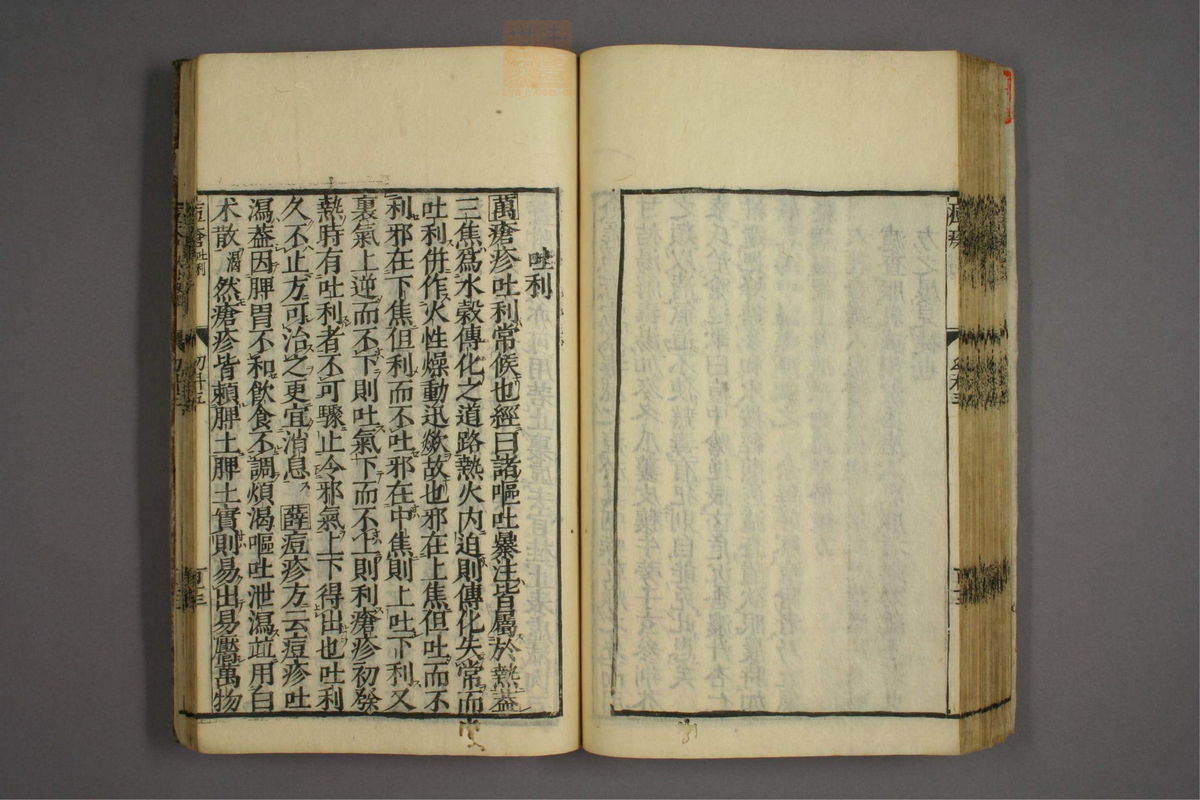 吐利
萬瘡疹吐利常候也經曰諸嘔吐暴注皆屬於熱葢
三焦爲水穀傳化之道路熱火内迫則傳化失常而
吐利併作火性燥動迅歘故也邪在上焦但吐而不
利邪在下焦但利而不吐邪在中焦則上吐下利又
裏氣上逆而不下則吐氣下而不上則利瘡疹初發
熱時有吐利者不可驟止令邪氣上下得出也吐利
久不止方可治之更宜消息 薛痘疹方云痘疹吐
瀉葢因脾胃不和飲食不調煩渴嘔吐泄瀉竝用白
朮散渴 然瘡疹皆賴脾土脾土實則易出易靨萬物
痘瘡 吐利
幼科三